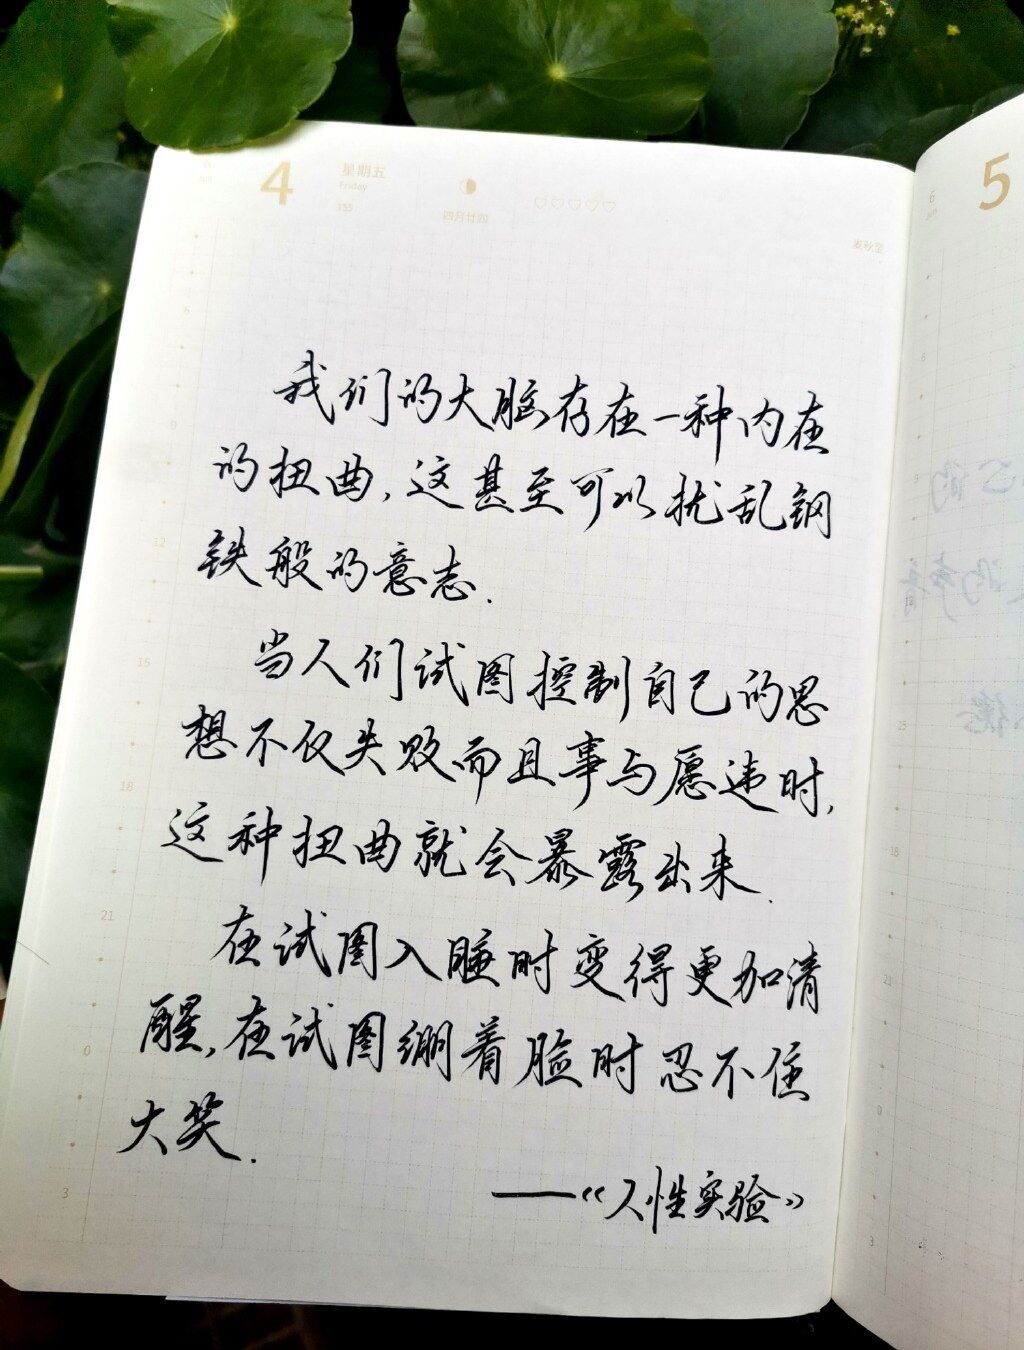 4
星期五
Friday
155
四月廿四
6
5
我们的大脑存在一种内在
的扭曲,这甚至可以扰乱钢
铁般的意志.
当人们试图控制自己的思
想不仅失败而且事与愿违时,
这种扭曲就会暴露出来.
在试图入睡时变得更加清
醒,在试图绷着脸时忍不住
大笑.
——《人性实验》
6
9
12
15
18
21
0
3
6
15
18
21
0
3